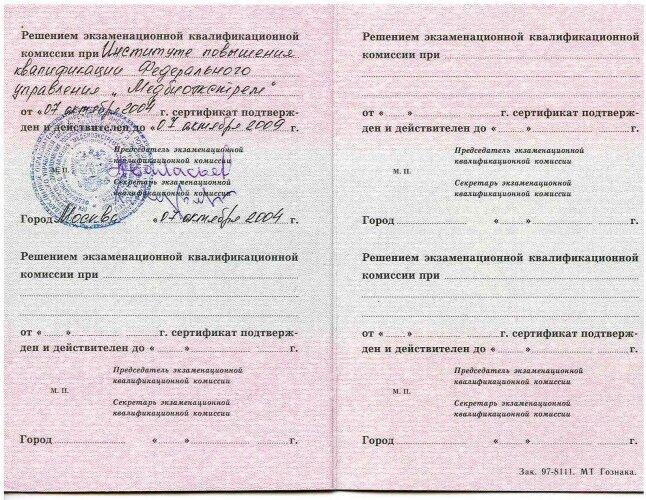 Решением экзаменационной квалификационной
комиссии при Институте повышения
квалификации Федерального
управления „Медбиоэкстрем"
от «07 октября 2004 г. сертификат подтверж-
ден и действителен до «07 октября 2009 г.
Председатель экзаменационной
квалификационной комиссии
М. П.
Секретарь экзаменационной
квалификационной комиссии
Город Москва «07 октября 2004 г.
Решением экзаменационной квалификационной
комиссии при
от « » г. сертификат подтверж-
ден и действителен до « » г.
Председатель экзаменационной
квалификационной комиссии
М. П.
Секретарь экзаменационной
квалификационной комиссии
Город « » г.
Решением экзаменационной квалификационной
комиссии при
от « » г. сертификат подтверж-
ден и действителен до « » г.
Председатель экзаменационной
квалификационной комиссии
М. П.
Секретарь экзаменационной
квалификационной комиссии
Город « » г.
Решением экзаменационной квалификационной
комиссии при
от « » г. сертификат подтверж-
ден и действителен до « » г.
Председатель экзаменационной
квалификационной комиссии
М. П.
Секретарь экзаменационной
квалификационной комиссии
Город « » г.
Зак. 97-8111. МТ Гознака.